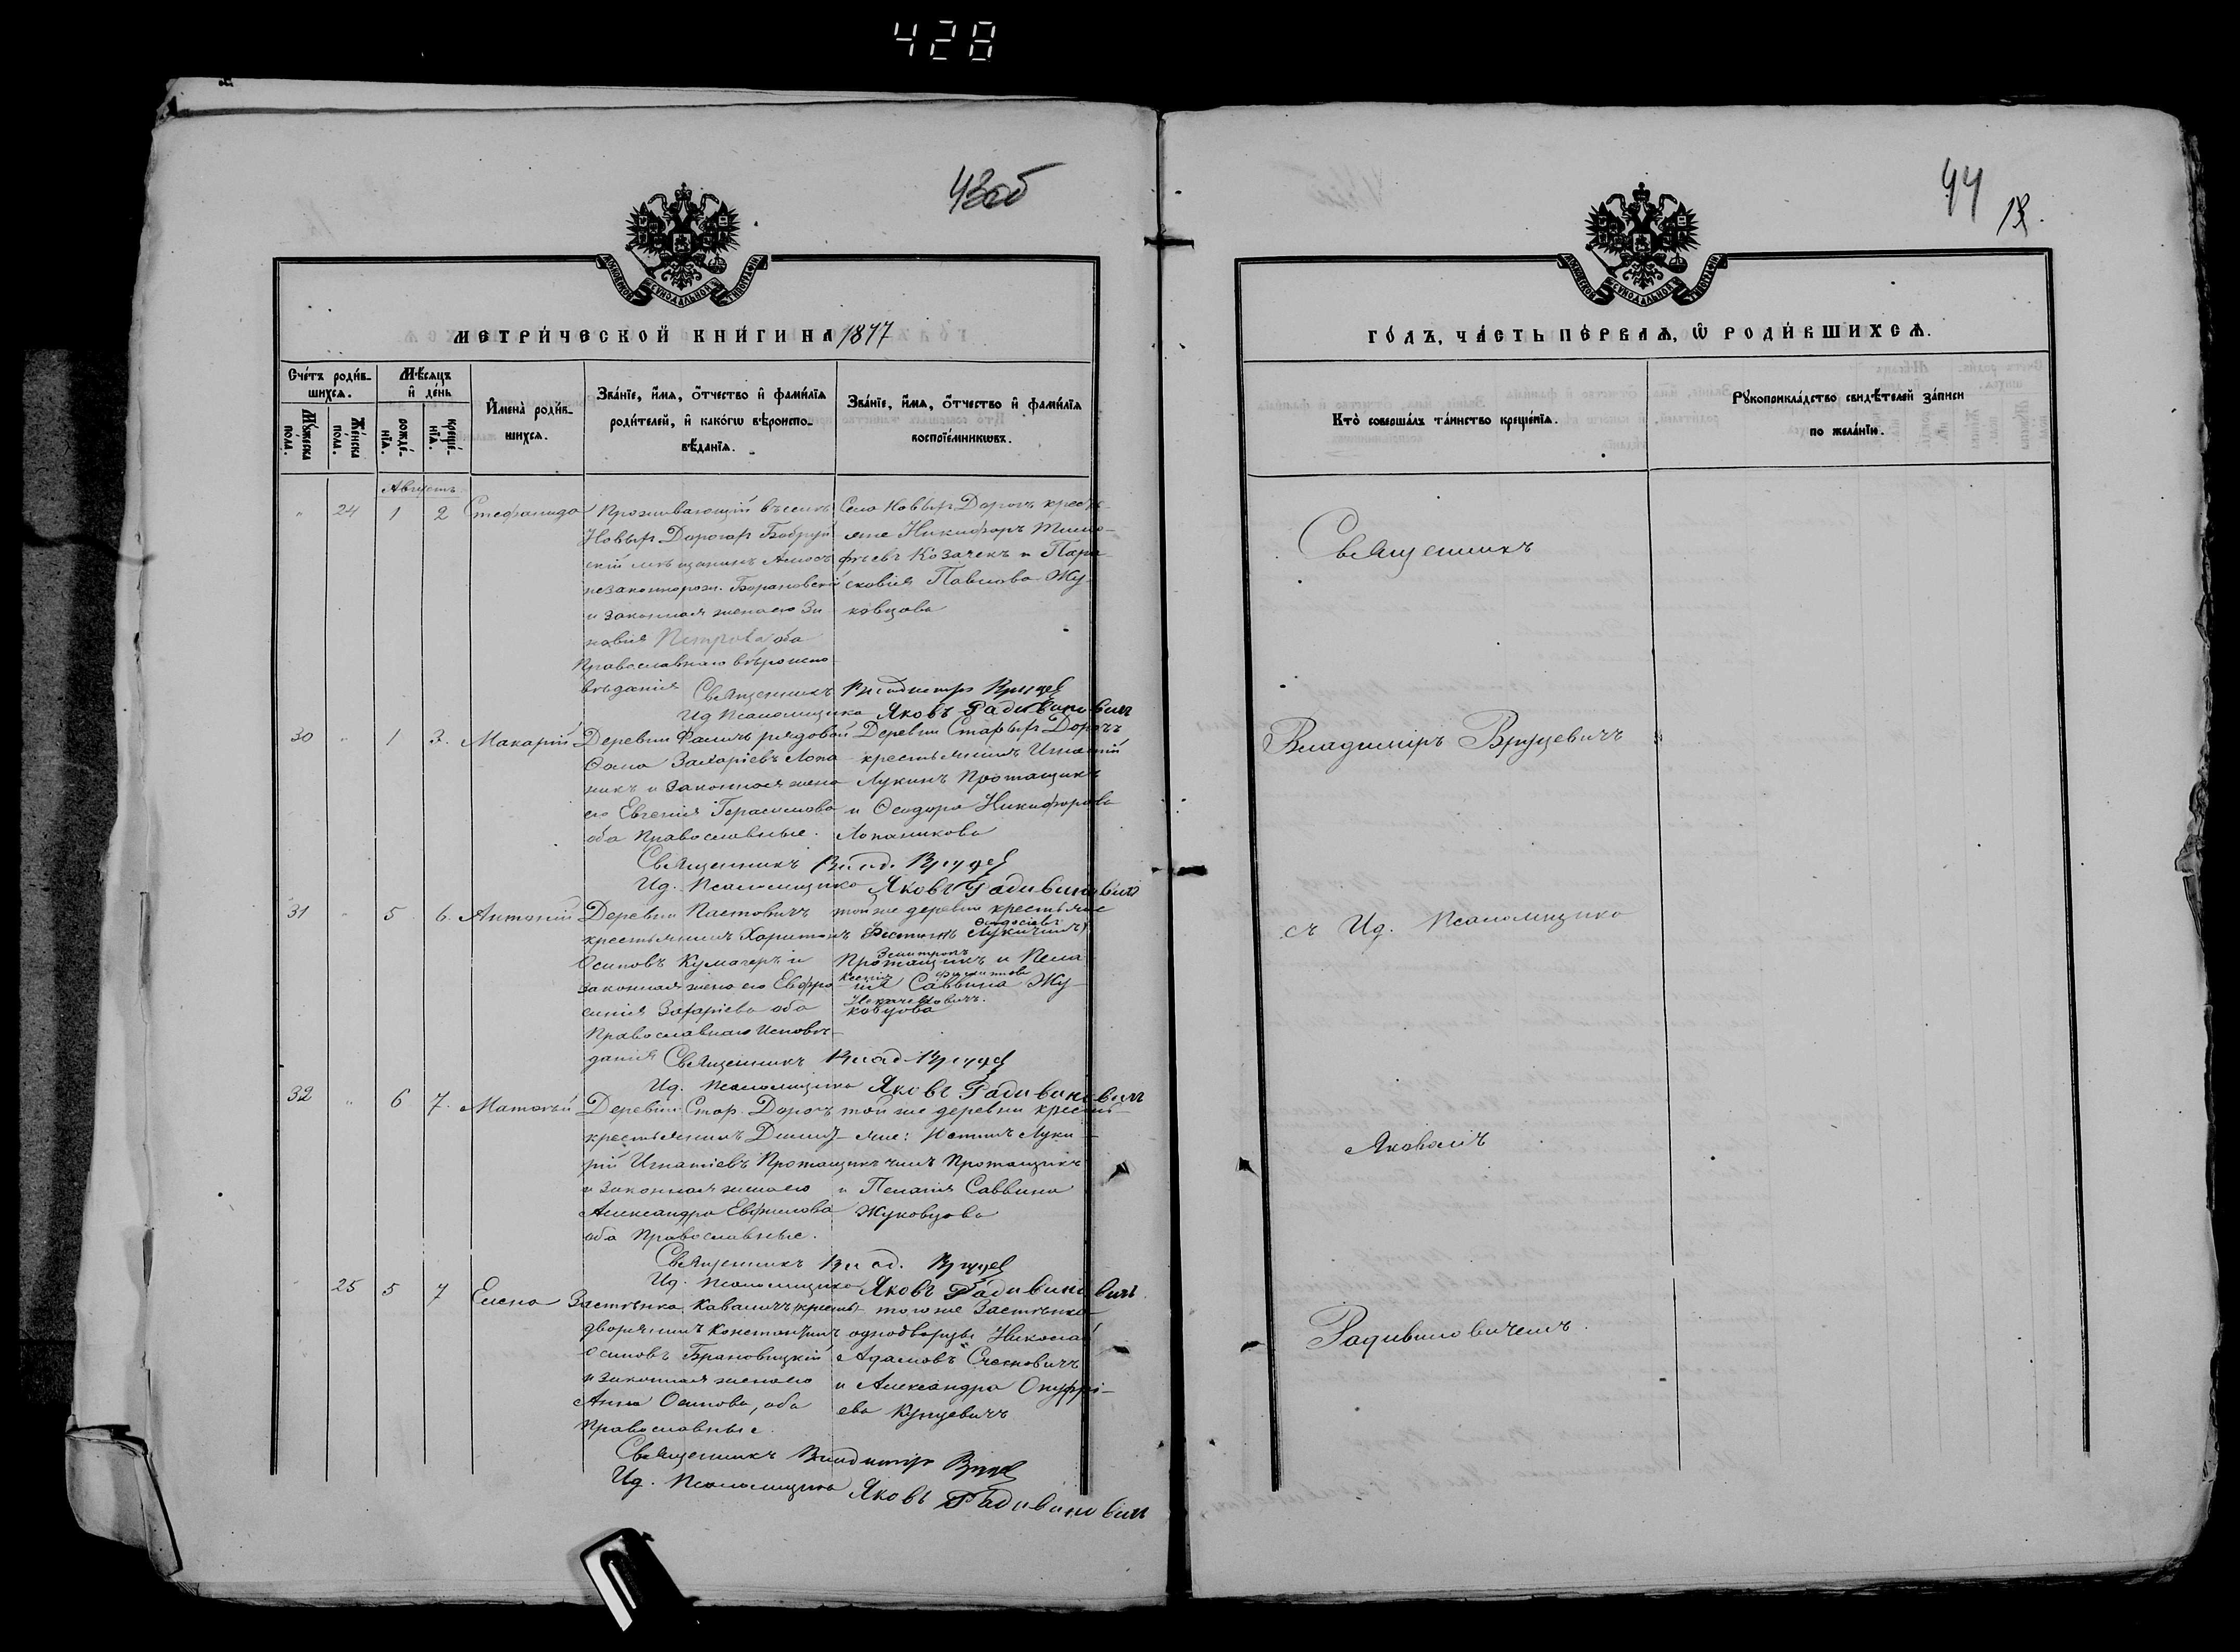 428
43об
МЕТРИ́ЧЕСКОЙ КНИ́ГИ НА 1877
Сче́тъ роди́в-
шихсѧ.
Мꙋ́жеска по́ла.
Же́нска по́ла.
Мѣ́сѧцъ
и҆ де́нь
рожде́-
нїѧ.
креще́-
нїѧ.
И҆мена̀ роди́в-
шихсѧ.
Зва́нїе, и҆́мѧ, ѻ҆́тчество и҆ фами́лїѧ
роди́телей, и҆ како́гѡ вѣроиспо-
вѣ́данїѧ.
Зва́нїе, и҆́мѧ, ѻ҆́тчество и҆ фами́лїѧ
воспрїе́мникѡвъ.
Августъ
" 24 1 2 Стефанида
Проживающій въ селѣ
Новыхъ Дорогахъ Бобруй
скій мѣщанинъ Амосъ
незаконнорож. Барановскій
и законная жена его Зи
новія Петрова оба
Православнаго вѣроиспо-
вѣданія
Село Новыхъ Дорогъ кресть-
яне Никифоръ Тимо-
фѣевъ Козачекъ и Пара
сковія Павлова Жу-
ковцова
Священникъ Владиміръ Вруцев
Ид Псаломщика Яковъ Радивиновичъ
30 " 1 3. Макарій
Деревни Фаличъ рядовой
Фома Захаріевъ Лопа
никъ и законная жена
его Евгенія Герасимова
оба Православные.
Деревни Старыхъ Дорогъ
крестьянинъ Игнатій
Лукинъ Протащикъ
и Ѳеодора Никифорова
Лопаникова
Священникъ Влад. Вруцев
Ид. Псаломщика Яковъ Радивиновичъ
31 " 5 6. Антоній
Деревни Пастовичъ
крестьянинъ Харитонъ
Осиповъ Кумагеръ и
законная жена его Евфро
синія Захаріева оба
Православнаго исповѣ-
данія
той же деревни крестьяне
Ѳеодосіевъ
Лукичинъ
Протащикъ и Пела
Саввина Жу-
ковцова
Священникъ Влад. Вруцев
Ид. Псаломщика Яковъ Радивиновичъ
32 " 6 7. Матѳей
Деревни Стар. Дорогъ
крестьянинъ Димит-
рій Игнатіевъ Протащикъ
и законная жена его
Александра Евфимова
оба Православные.
той же деревни кресть-
яне: Истинъ Луки-
чинъ Протащикъ
и Пелагія Саввина
Жуковцова
Священникъ Влад. Вруцев
Ид. Псаломщика Яковъ Радивиновичъ
" 25 5 7 Елена
Застѣнка Каваличъ
дворянинъ Константинъ
Осиповъ Барановицкій
и законная жена его
Анна Осипова, оба
Православные.
того же Застѣнка
однодворцы Николай
Адамовъ
и Александра Онуфрі-
ева Купцевичъ
Священникъ Владиміръ Вруцев
Ид. Псаломщика Яковъ Радивиновичъ
44
ГО́ДЪ, ЧА́СТЬ ПЕ́РВАѦ, Ѡ҆ РОДИ́ВШИХСѦ.
Кто̀ соверша́лъ та́инство креще́нїѧ.
Рꙋкоприкла́дство свидѣ́телей за́писи
по жела́нїю.
Священникъ
Владиміръ Вруцевичъ
съ Ид. Псаломщика
Яковомъ
Радивиновичемъ.